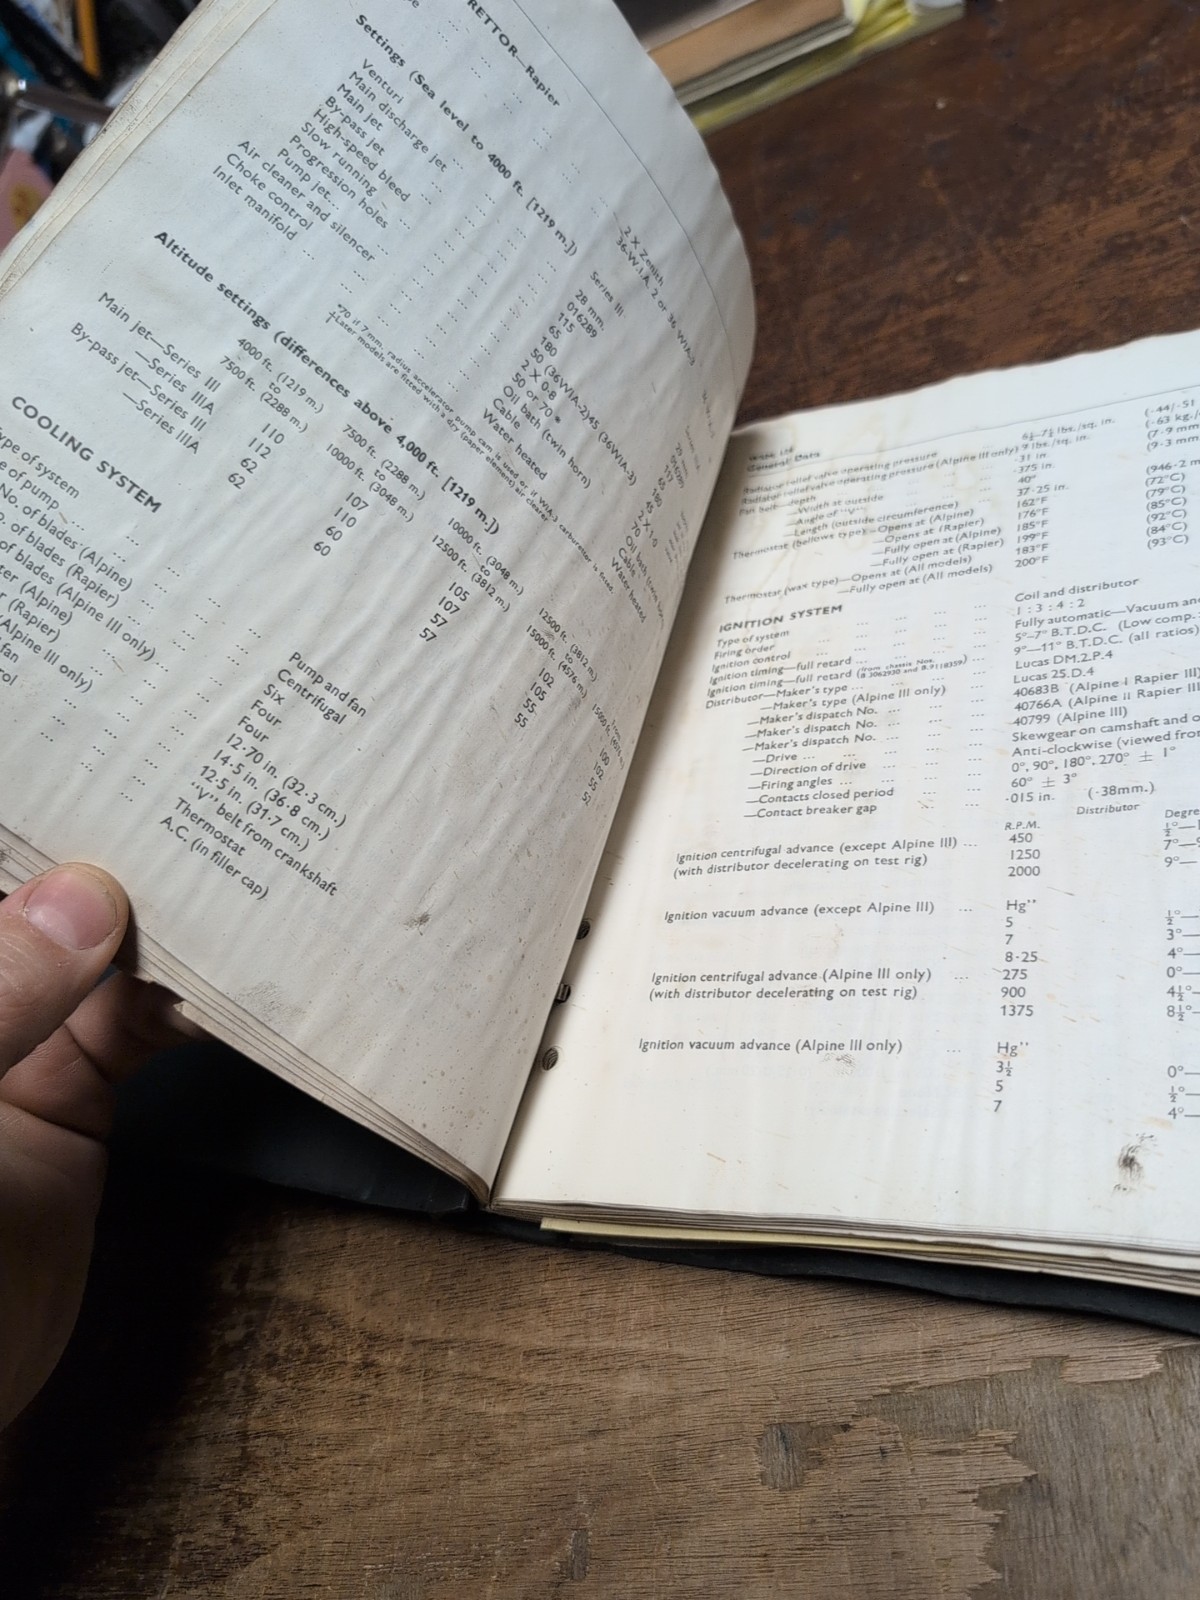 RETTOR—Rapier
2 X Zenith
36.W.I.A. 2 or 36 WIA-3
Settings (Sea level to 4000 ft. [1219 m.])
Series III
Venturi ... 28 mm.
Main discharge jet ... 016289
Main jet ... 115
By-pass jet ... 65
High-speed bleed ... 180
Slow running ... 50 (36WIA-2) 45 (36WIA-3)
Progression holes ... 2 X 0·8
Pump jet... 50 or 70 *
Air cleaner and silencer ... Oil bath (twin horn)
Choke control ... Cable
Inlet manifold ... Water heated
45
2 X 1·0
70
Oil bath
Cable
Water heated
*70 if 7mm. radius accelerator pump cam is used or if WIA.3 carburettor is fitted.
‡Later models are fitted with a dry (paper element) air cleaner
Altitude settings (differences above 4,000 ft. [1219 m.])
4000 ft. (1219 m.) to 7500 ft. (2288 m.)
7500 ft. (2288 m.) to 10000 ft. (3048 m.)
10000 ft. (3048 m.) 12500 ft. (3812 m.)
12500 ft. (3812 m.) to 15000 ft. (4576 m.)
Main jet—Series III 110 107 105 102 100
—Series IIIA 112 110 107 105 102
By-pass jet—Series III 62 60 57 55
—Series IIIA 62 60 57 55 52
COOLING SYSTEM
ype of system ... Pump and fan
e of pump ... Centrifugal
No. of blades (Alpine) ... Six
of blades (Rapier) ... Four
of blades (Alpine III only) ... Four
ter (Alpine) ... 12·70 in. (32·3 cm.)
r (Rapier) ... 14·5 in. (36·8 cm.)
(Alpine III only) ... 12·5 in. (31·7 cm.)
fan ... "V" belt from crankshaft
ol ... Thermostat
A.C. (in filler cap)
General Data
Radiator relief valve operating pressure 6½–7½ lbs./sq. in. (·44/·51
Radiator relief valve operating pressure (Alpine III only) 9 lbs./sq. in. (·63 kg./
Fan belt—depth ... ·31 in. (7·9 mm
—Width at outside ... ·375 in. (9·3 mm
—Angle of "V" ... 40°
—Length (outside circumference) 37·25 in. (946·2 m
Thermostat (bellows type)—Opens at (Alpine) 162°F (72°C)
—Opens at (Rapier) 176°F (79°C)
—Fully open at (Alpine) 185°F (85°C)
—Fully open at (Rapier) 199°F (92°C)
Thermostat (wax type)—Opens at (All models) 183°F (84°C)
—Fully open at (All models) 200°F (93°C)
IGNITION SYSTEM
Type of system ... Coil and distributor
Firing order ... 1 : 3 : 4 : 2
Ignition control ... Fully automatic—Vacuum and
Ignition timing—full retard ... 5°–7° B.T.D.C. (Low comp.
Ignition timing—full retard (from chassis Nos. B 3062930 and B.9118359) ... 9°—11° B.T.D.C. (all ratios)
Distributor—Maker's type ... Lucas DM.2.P.4
—Maker's type (Alpine III only) ... Lucas 25.D.4
—Maker's dispatch No. ... 40683B (Alpine I Rapier III)
—Maker's dispatch No. ... 40766A (Alpine II Rapier III
—Maker's dispatch No. ... 40799 (Alpine III)
—Drive ... Skewgear on camshaft and o
—Direction of drive ... Anti-clockwise (viewed fro
—Firing angles ... 0°, 90°, 180°, 270° ± 1°
—Contacts closed period ... 60° ± 3°
—Contact breaker gap ... ·015 in. (·38mm.)
Distributor
R.P.M. Degre
Ignition centrifugal advance (except Alpine III) ... 450 ½°—
(with distributor decelerating on test rig) 1250 7°—
2000 9°—
Ignition vacuum advance (except Alpine III) ... Hg"
5 ½°—
7 3°—
8·25 4°—
Ignition centrifugal advance (Alpine III only) ... 275 0°—
(with distributor decelerating on test rig) 900 4½°—
1375 8½°—
Ignition vacuum advance (Alpine III only) ... Hg"
3½ 0°—
5 ½°—
7 4°—